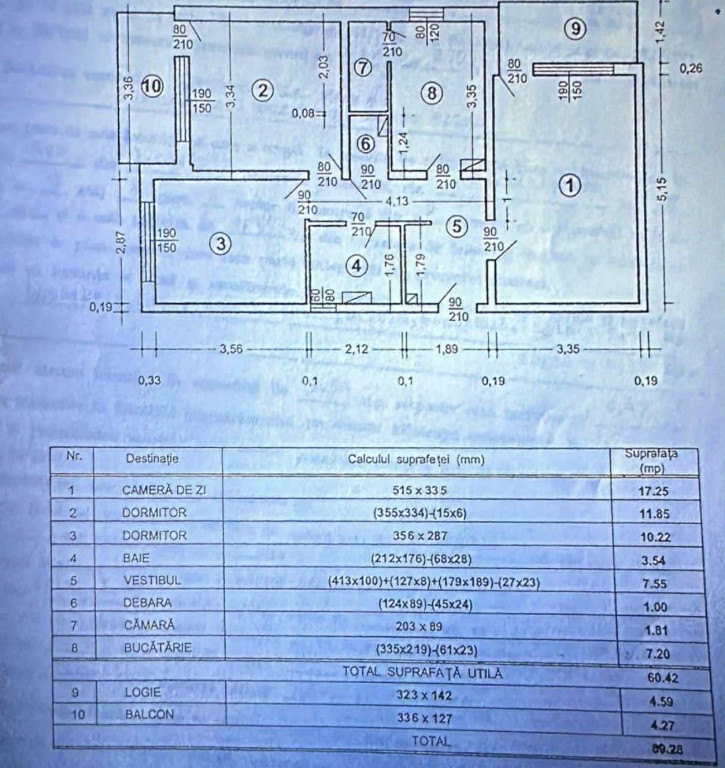 80
210
70
210
80
120
9
1,42
0,26
80
210
190
150
10
3,36
190
150
3,34
2
2,03
7
8
3,35
0,08
6
1,24
1
5,15
80
210
90
210
80
210
90
210
4,13
1
5
90
210
190
150
3
2,87
70
210
4
1,76
1,79
60
80
90
210
0,19
3,56
2,12
1,89
3,35
0,33
0,1
0,1
0,19
0,19
Nr. Destinație Calculul suprafeței (mm) Suprafața (mp)
1 CAMERĂ DE ZI 515 x 335 17.25
2 DORMITOR (355x334)-(15x6) 11.85
3 DORMITOR 356 x 287 10.22
4 BAIE (212x176)-(68x28) 3.54
5 VESTIBUL (413x100)+(127x8)+(179x189)-(27x23) 7.55
6 DEBARA (124x89)-(45x24) 1.00
7 CĂMARĂ 203 x 89 1.81
8 BUCĂTĂRIE (335x219)-(61x23) 7.20
TOTAL SUPRAFAȚĂ UTILĂ 60.42
9 LOGIE 323 x 142 4.59
10 BALCON 336 x 127 4.27
TOTAL